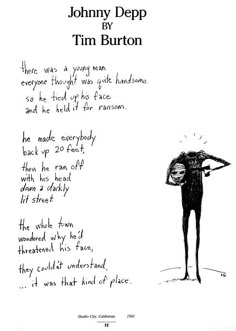 Johnny Depp
BY
Tim Burton
there was a young man
everyone thought was quite handsome.
so he tied up his face
and he held it for ransom.
he made everybody
back up 20 feet,
then he ran off
with his head
down a darkly
lit street.
the whole town
wondered why he'd
threatened his face,
they couldn't understand,
... it was that kind of place.
Studio City, California 1991
11